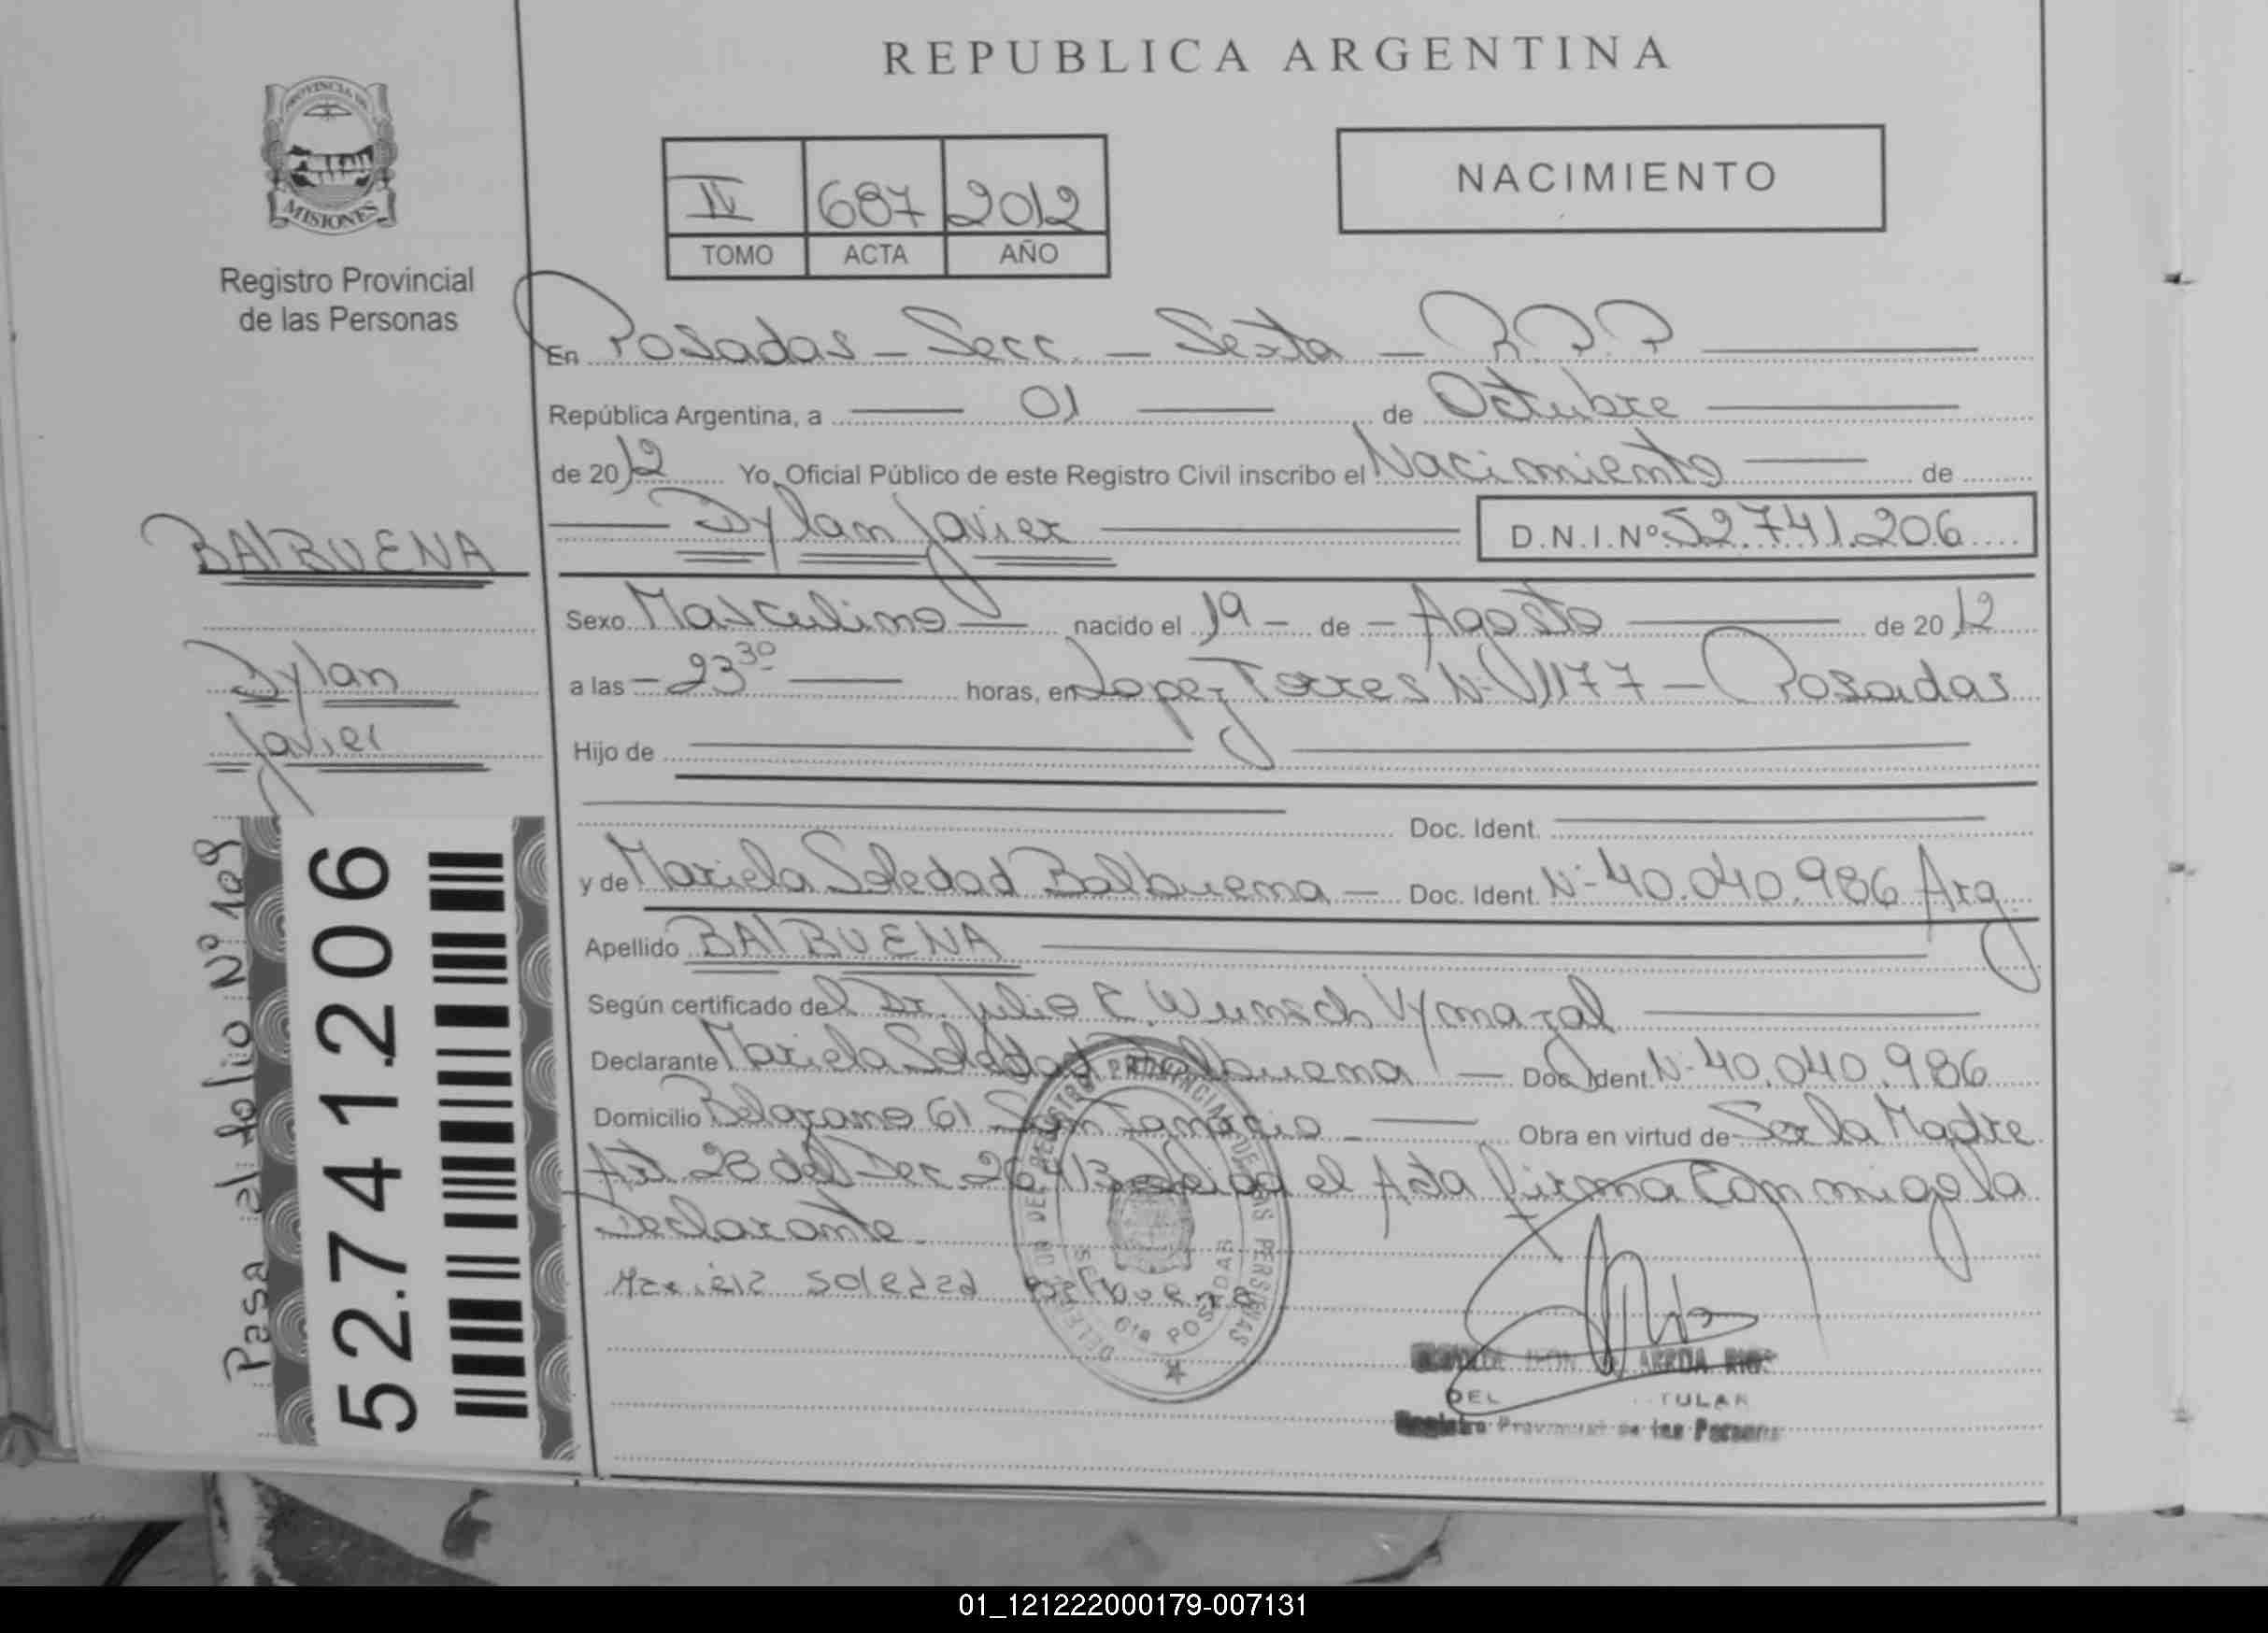 REPUBLICA ARGENTINA
PROVINCIA DE
MISIONES
Registro Provincial
de las Personas
IV 687 2012
TOMO ACTA AÑO
NACIMIENTO
En Posadas - Secc. - Sexta - R.P.P
República Argentina, a 01 de Octubre
de 2012 Yo, Oficial Público de este Registro Civil inscribo el Nacimiento de
Dylan Javier D.N.I.Nº 52.741.206
BAlBUENA
Dylan
Javier
Sexo Masculino nacido el 19 - de - Agosto de 2012
a las - 23 30 horas, en Lopez Torres Nº 1177 - Posadas
Hijo de
Doc. Ident.
y de Mariela Soledad Balbuena - Doc. Ident. Nº 40.040.986 Arg.
Apellido BAlBUENA
Según certificado del Dr. Julio C. Wunsch Vymazal
Declarante Mariela Soledad Balbuena - Doc. Ident Nº 40.040.986
Domicilio Belgrano 61 San Ignacio - Obra en virtud de Ser la Madre
Art. 28 del Dec. 264/13 el Acta firma Conmigo la
Declarante.
Mariela Soledad Balbuena
REGISTRO PROVINCIAL DE LAS PERSONAS
6ta POSADAS
DEL TULAR
Registro Provincial de las Personas
Pasa al folio Nº 109
52.741.206
01_121222000179-007131